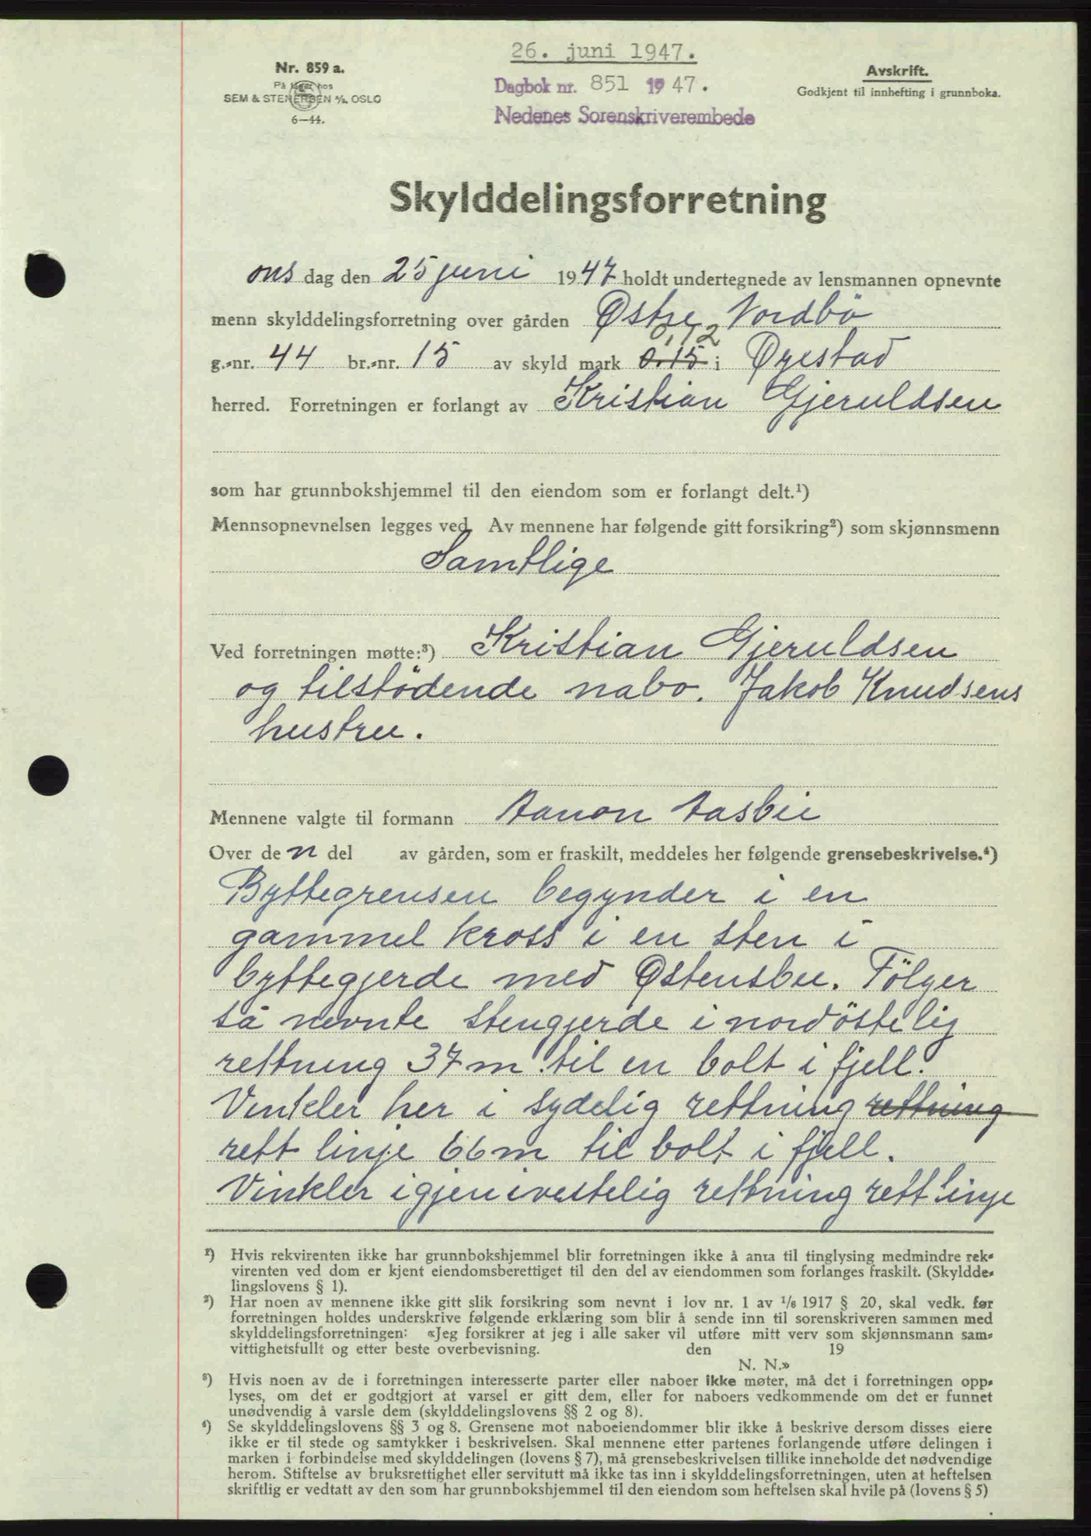 26. juni 1947.
Nr. 859 a.
På lager hos
SEM & STENERSEN A/S, OSLO
6—44.
Dagbok nr. 851 1947.
Nedenes Sorenskriverembede
Avskrift.
Godkjent til innhefting i grunnboka.
Skylddelingsforretning
ons dag den 25 juni 1947 holdt undertegnede av lensmannen opnevnte
menn skylddelingsforretning over gården Østre Nordbö
0,12
g.-nr. 44 br.-nr. 15 av skyld mark 0.15 i Øyestad
herred. Forretningen er forlangt av Kristian Gjeruldsen
som har grunnbokshjemmel til den eiendom som er forlangt delt.¹)
Mennsopnevnelsen legges ved. Av mennene har følgende gitt forsikring²) som skjønnsmenn
Samtlige
Ved forretningen møtte:³) Kristian Gjeruldsen
og tilstödende nabo. Jakob Knudsens
hustru.
Mennene valgte til formann Aanon Aasbie
Over den del av gården, som er fraskilt, meddeles her følgende grensebeskrivelse.⁴)
Byttegrensen begynder i en
gammel kross i en sten i
byttegjerde med Østensbu. Fölger
så nevnte stengjerde i nordöstelig
rettning 37 m til en bolt i fjell.
Vinkler her i sydelig rettning rettning
rett linje 66 m til bolt i fjell.
Vinkler igjen i vestelig rettning rett linje
¹) Hvis rekvirenten ikke har grunnbokshjemmel blir forretningen ikke å anta til tinglysing medmindre rek-
virenten ved dom er kjent eiendomsberettiget til den del av eiendommen som forlanges fraskilt. (Skyldde-
lingslovens § 1).
²) Har noen av mennene ikke gitt slik forsikring som nevnt i lov nr. 1 av 1/6 1917 § 20, skal vedk. før
forretningen holdes underskrive følgende erklæring som blir å sende inn til sorenskriveren sammen med
skylddelingsforretningen: «Jeg forsikrer at jeg i alle saker vil utføre mitt verv som skjønnsmann sam-
vittighetsfullt og etter beste overbevisning. den 19
N. N.»
³) Hvis noen av de i forretningen interesserte parter eller naboer ikke møter, må det i forretningen opp-
lyses, om det er godtgjort at varsel er gitt dem, eller for naboers vedkommende om det er funnet
unødvendig å varsle dem (skylddelingslovens §§ 2 og 8).
⁴) Se skylddelingslovens §§ 3 og 8. Grensene mot naboeiendommer blir ikke å beskrive dersom disses eiere
ikke er til stede og samtykker i beskrivelsen. Skal mennene etter partenes forlangende utføre delingen i
marken i forbindelse med skylddelingen (lovens § 7), må grensebeskrivelsen tillike inneholde det nødvendige
herom. Stiftelse av bruksrettighet eller servitutt må ikke tas inn i skylddelingsforretningen, uten at heftelsen
skriftlig er vedtatt av den som har grunnbokshjemmel til den eiendom som heftelsen skal hvile på (lovens § 5)